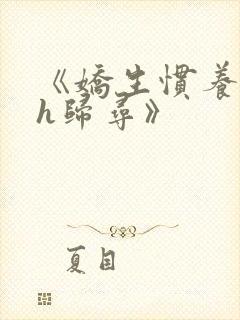 《嬌生慣養
h歸尋》
夏目